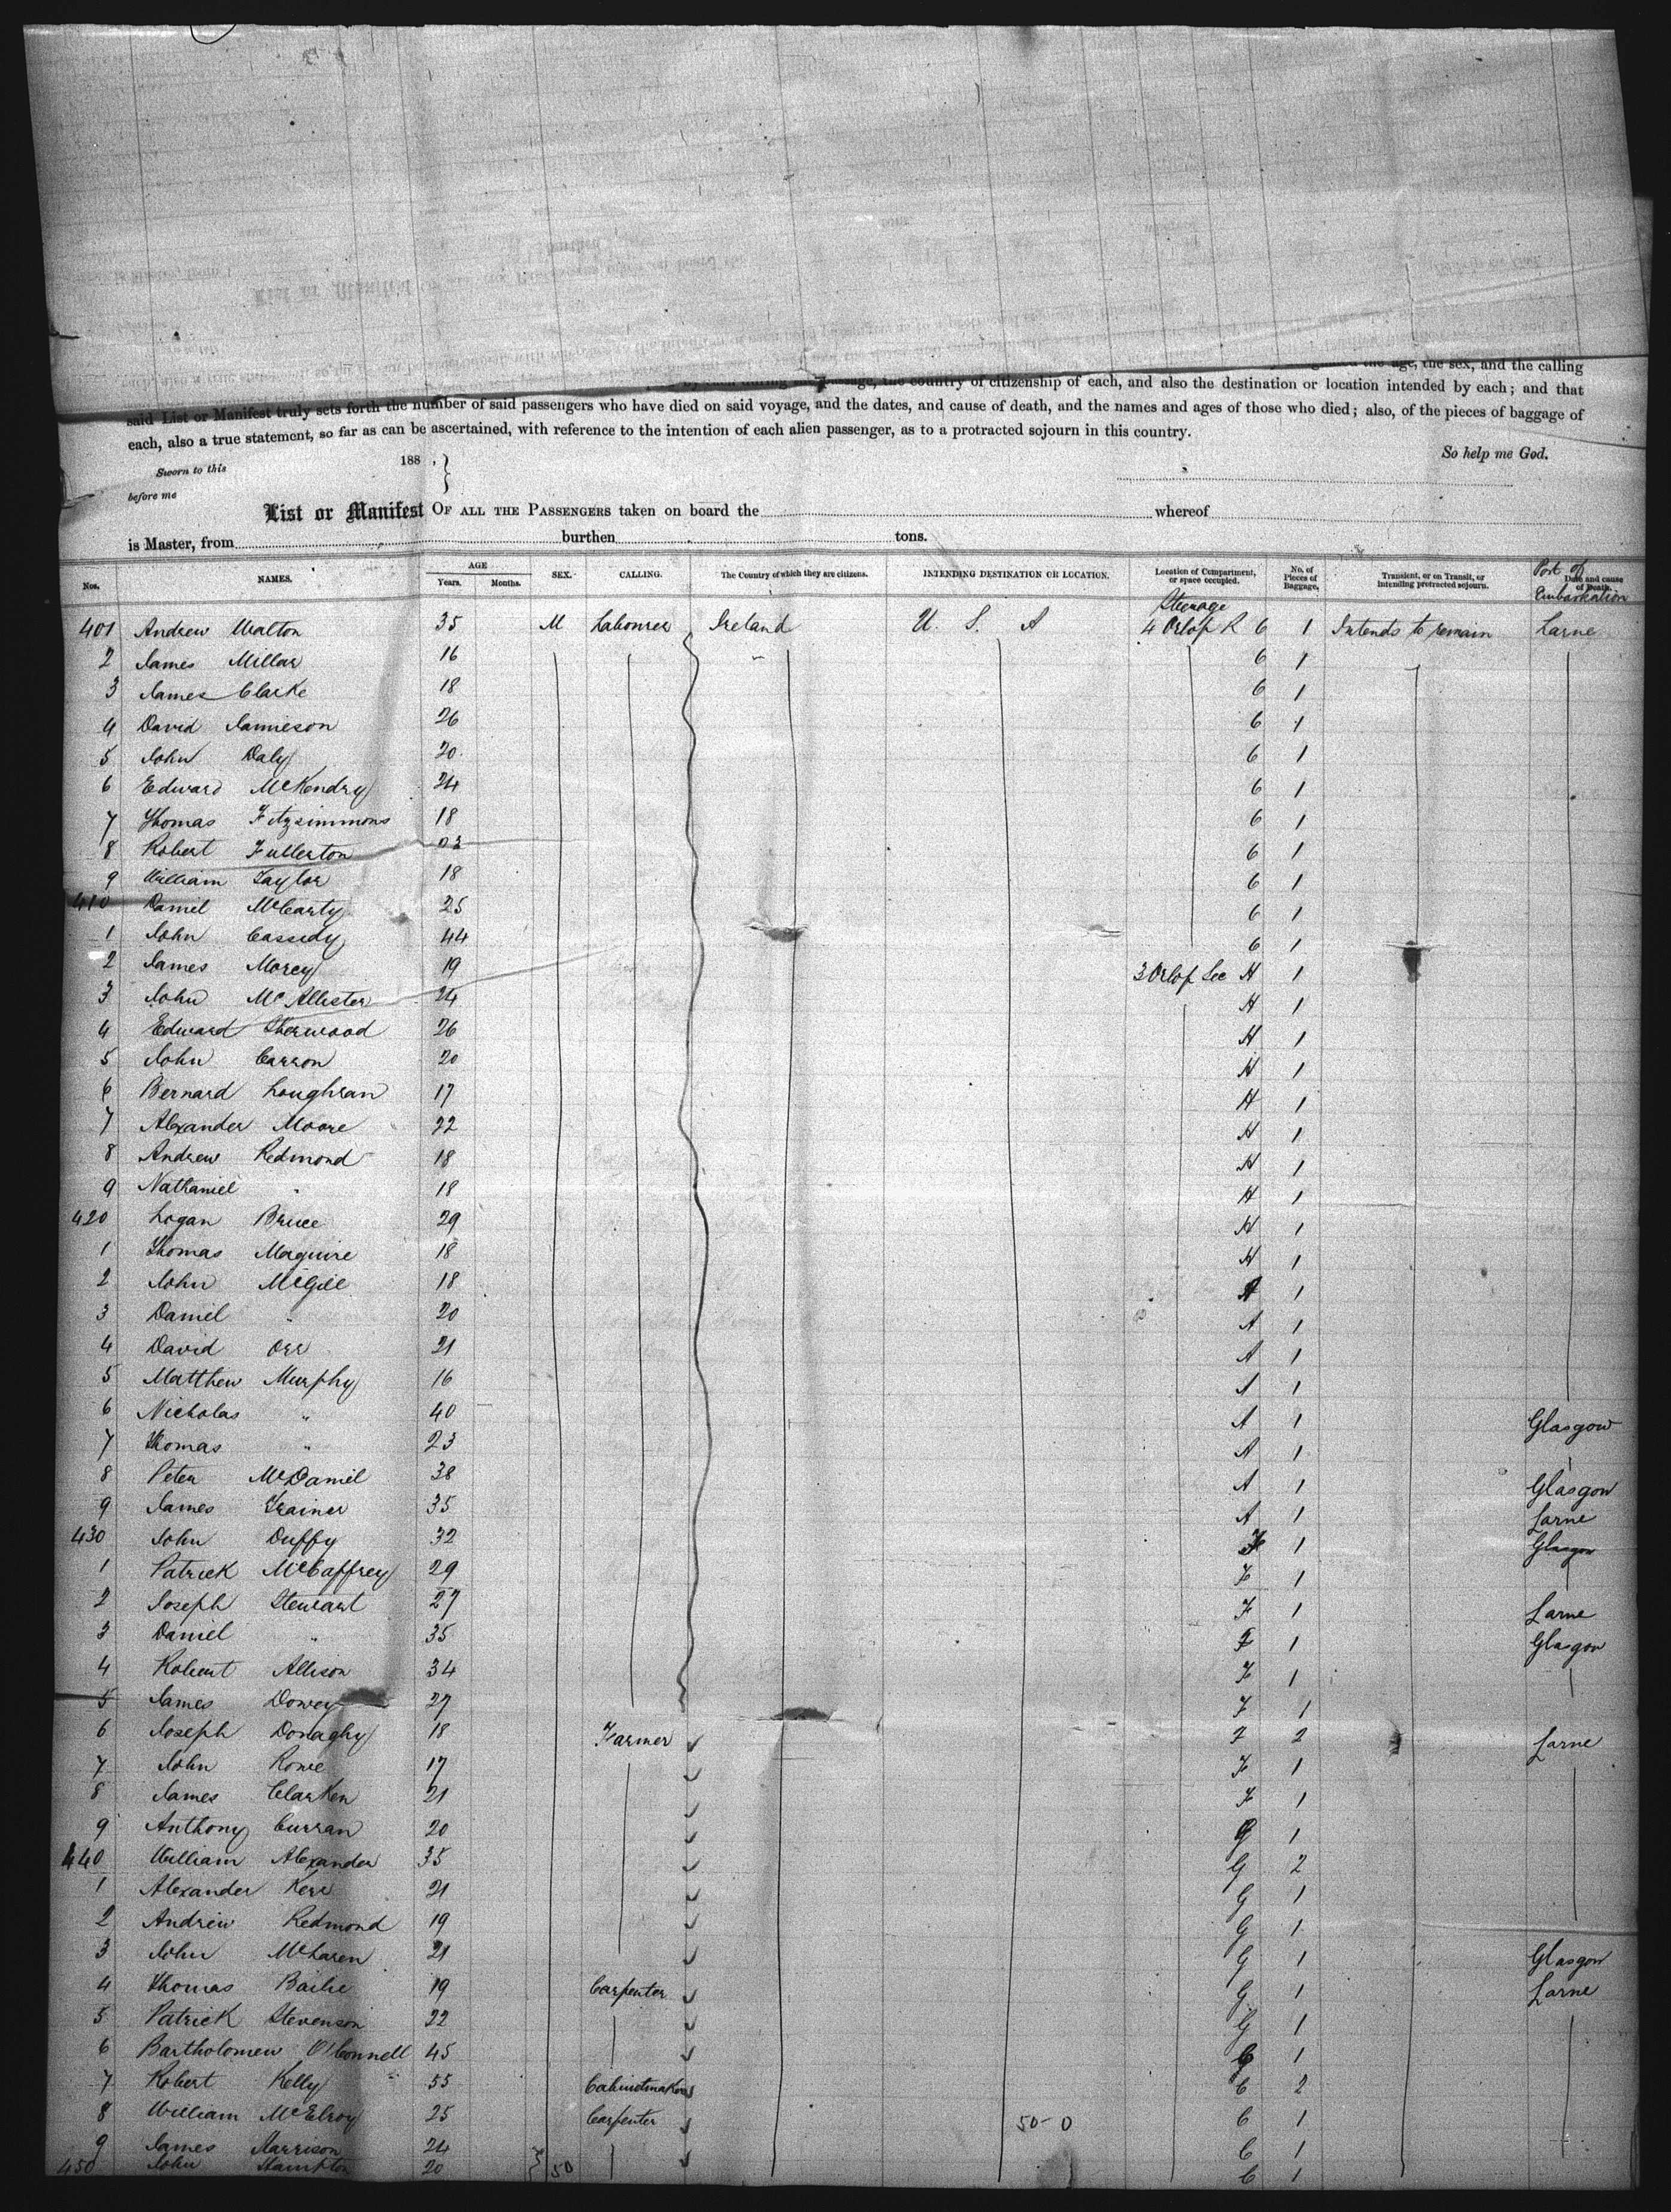 age, the sex, and the calling
passage, the country of citizenship of each, and also the destination or location intended by each; and that
said List or Manifest truly sets forth the number of said passengers who have died on said voyage, and the dates, and cause of death, and the names and ages of those who died; also, of the pieces of baggage of
each, also a true statement, so far as can be ascertained, with reference to the intention of each alien passenger, as to a protracted sojourn in this country.
So help me God.
Sworn to this 188 ,
before me
List or Manifest OF ALL THE PASSENGERS taken on board the whereof
is Master, from burthen tons.
Nos. NAMES. AGE Years. Months. SEX. CALLING. The Country of which they are citizens. INTENDING DESTINATION OR LOCATION. Location of Compartment, or space occupied. No. of Pieces of Baggage. Transient, or on Transit, or intending protracted sojourn. Date and cause of Death.
Port of Embarkation
Steerage
401 Andrew Walton 35 M Labourer Ireland U. S. A 4 Orlop R 6 1 Intends to remain Larne
2 James Millar 16 6 1
3 James Clarke 18 6 1
4 David Jamieson 26 6 1
5 John Daly 20 6 1
6 Edward McKendry 24 6 1
7 Thomas Fitzsimmons 18 6 1
8 Robert Fullerton 6 1
9 William Taylor 18 6 1
410 Daniel McCarty 25 6 1
1 John Cassidy 44 6 1
2 James Morey 19 3 Orlop Sec H 1
3 John McAllister 24 H 1
4 Edward Sherwood 26 H 1
5 John Carron 20 H 1
6 Bernard Loughran 17 H 1
7 Alexander Moore 22 H 1
8 Andrew Redmond 18 H 1
9 Nathaniel " 18 H 1
420 Logan Bruce 29 H 1
1 Thomas Maguire 18 H 1
2 John McGill 18 A 1
3 Daniel " 20 A 1
4 David Orr 21 A 1
5 Matthew Murphy 16 A 1
6 Nicholas " 40 A 1 Glasgow
7 Thomas " 23 A 1
8 Peter McDaniel 38 A 1 Glasgow
9 James Trainer 35 A 1 Larne
430 John Duffy 32 F 1 Glasgow
1 Patrick McCaffrey 29 F 1
2 Joseph Stewart 27 F 1 Larne
3 Daniel " 35 F 1 Glasgow
4 Robert Allison 34 F 1
5 James Dowey 27 F 1
6 Joseph Donaghy 18 Farmer F 2 Larne
7 John Rowe 17 F 1
8 James Clarken 21 F 1
9 Anthony Curran 20 G 1
440 William Alexander 35 G 2
1 Alexander Kerr 21 G 1
2 Andrew Redmond 19 G 1
3 John McLaren 21 G 1 Glasgow
4 Thomas Bailie 19 Carpenter G 1 Larne
5 Patrick Stevenson 22 G 1
6 Bartholomew O'Connell 45 1
7 Robert Kelly 55 Cabinetmaker C 2
8 William McElroy 25 Carpenter 50-0 C 1
9 James Harrison 24 C 1
450 John Hampton 20 50 C 1